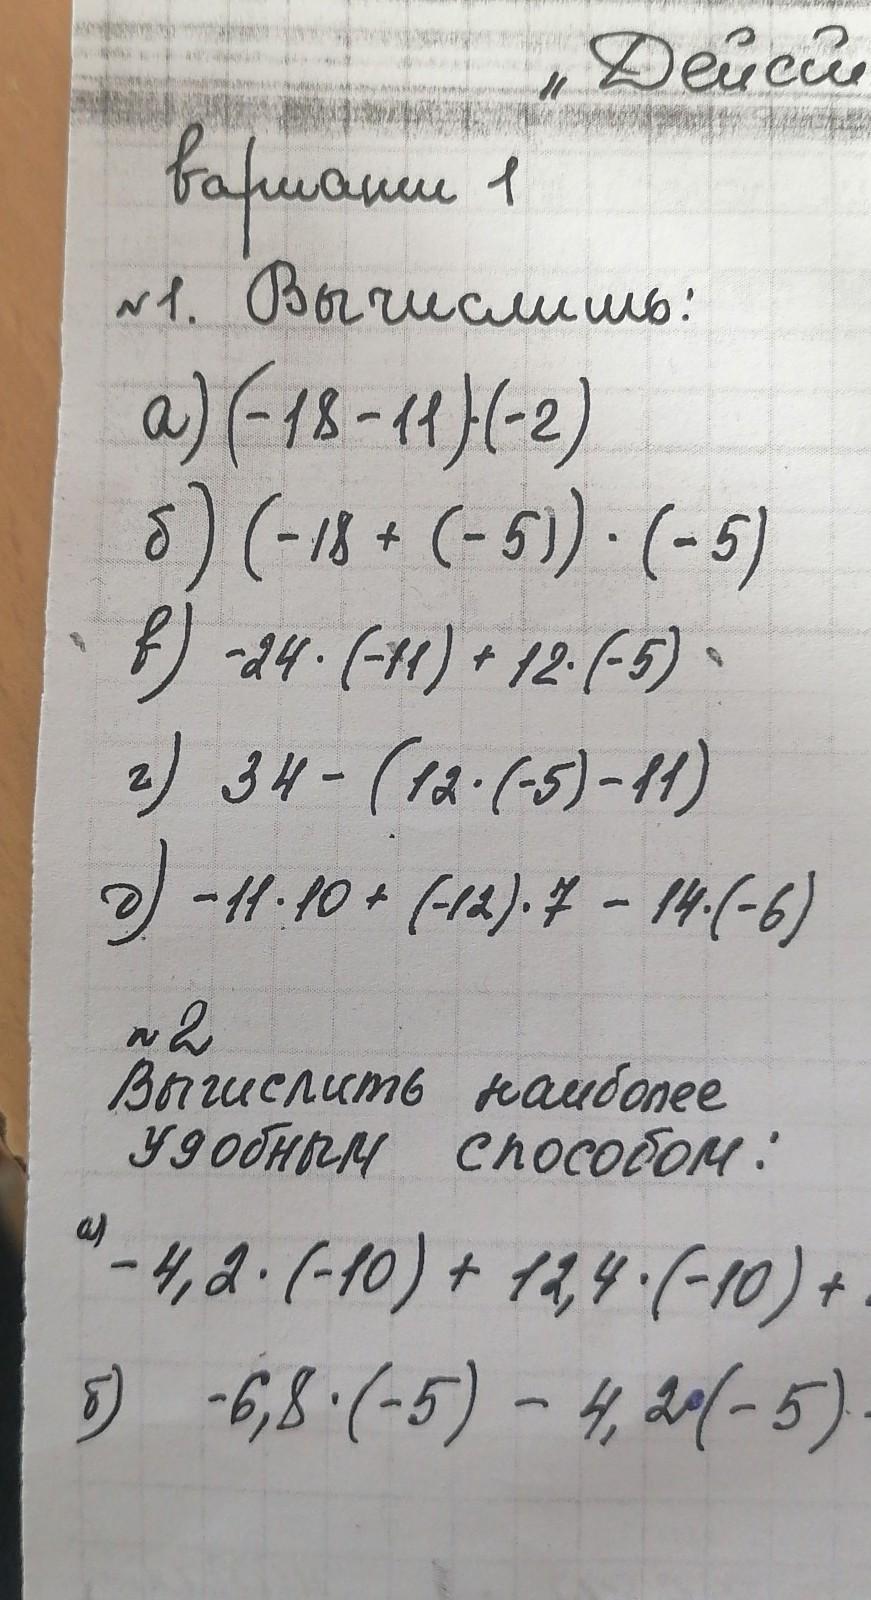 „Дейст
Вариант 1
№1. Вычислить:
а) (-18-11)·(-2)
б) (-18 + (-5)) · (-5)
в) -24·(-11) + 12·(-5)
г) 34 - (12·(-5) - 11)
д) -11·10 + (-12)·7 - 14·(-6)
№2
Вычислить наиболее
удобным способом:
а) -4,2·(-10) + 12,4·(-10) +
б) -6,8·(-5) - 4,2·(-5)